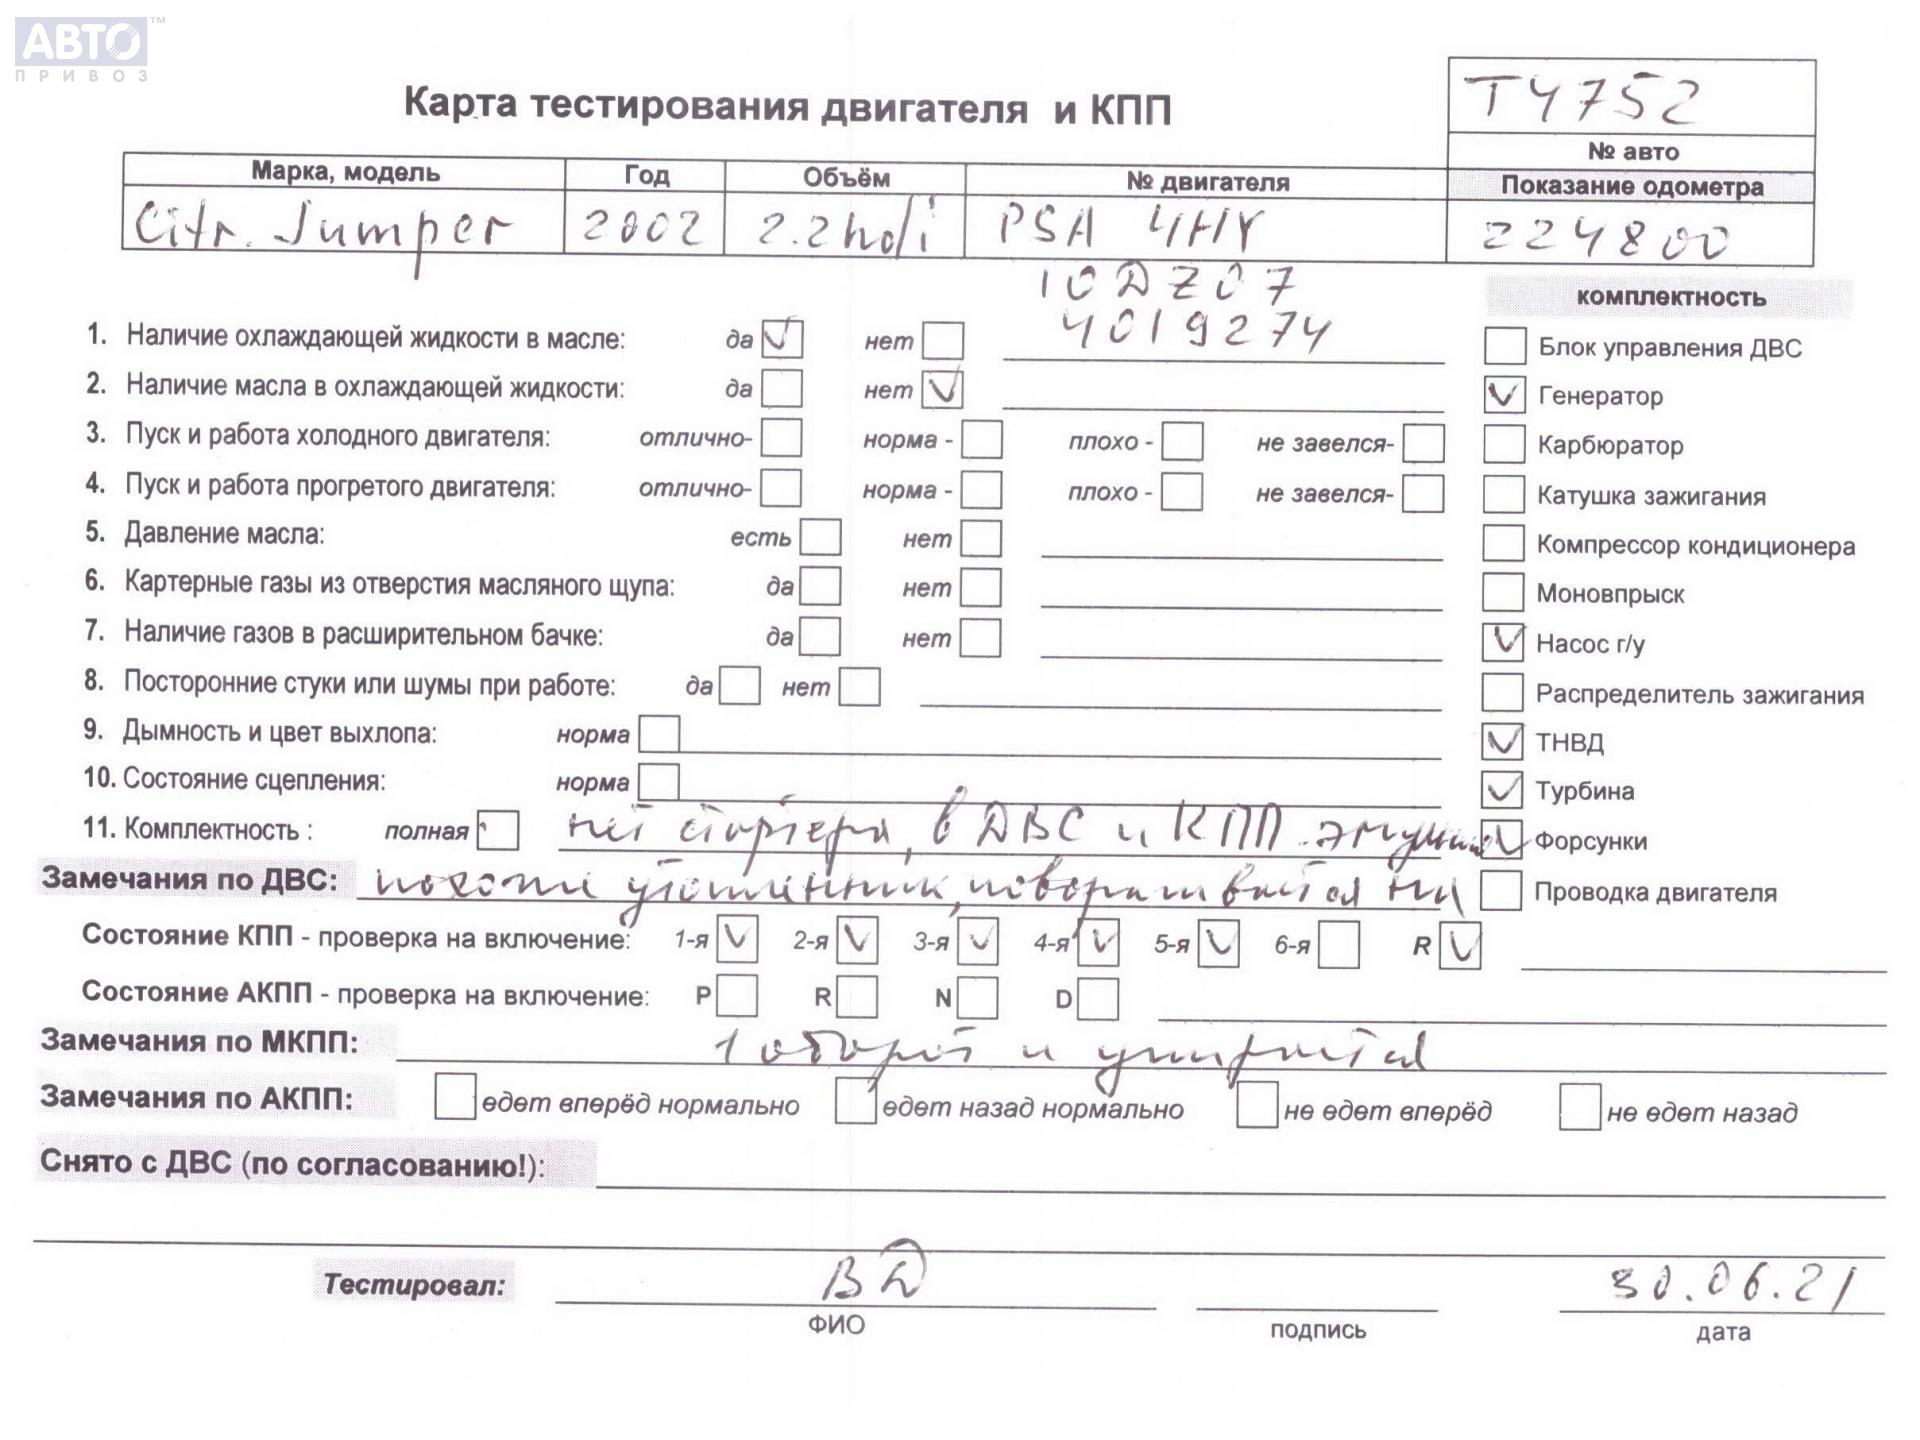 АВТО™
ПРИВОЗ
Карта тестирования двигателя и КПП
T4752
№ авто
Марка, модель Год Объём № двигателя Показание одометра
Citr. Jumper 2002 2.2hdi PSA 4HY 224800
10DZ07
4019274
комплектность
1. Наличие охлаждающей жидкости в масле: да нет
Блок управления ДВС
2. Наличие масла в охлаждающей жидкости: да нет
Генератор
3. Пуск и работа холодного двигателя: отлично- норма - плохо - не завелся-
Карбюратор
4. Пуск и работа прогретого двигателя: отлично- норма - плохо - не завелся-
Катушка зажигания
5. Давление масла: есть нет
Компрессор кондиционера
6. Картерные газы из отверстия масляного щупа: да нет
Моновпрыск
7. Наличие газов в расширительном бачке: да нет
Насос г/у
8. Посторонние стуки или шумы при работе: да нет
Распределитель зажигания
9. Дымность и цвет выхлопа: норма
ТНВД
10. Состояние сцепления: норма
Турбина
11. Комплектность : полная нет стартера, в ДВС и КПП эмульсия
Форсунки
Замечания по ДВС: похоже утопленник, поворачивается на
Проводка двигателя
Состояние КПП - проверка на включение: 1-я 2-я 3-я 4-я 5-я 6-я R
Состояние АКПП - проверка на включение: P R N D
Замечания по МКПП: 1 оборот и упирается
Замечания по АКПП: едет вперёд нормально едет назад нормально не едет вперёд не едет назад
Снято с ДВС (по согласованию!):
Тестировал: ВД 30.06.21
ФИО подпись дата